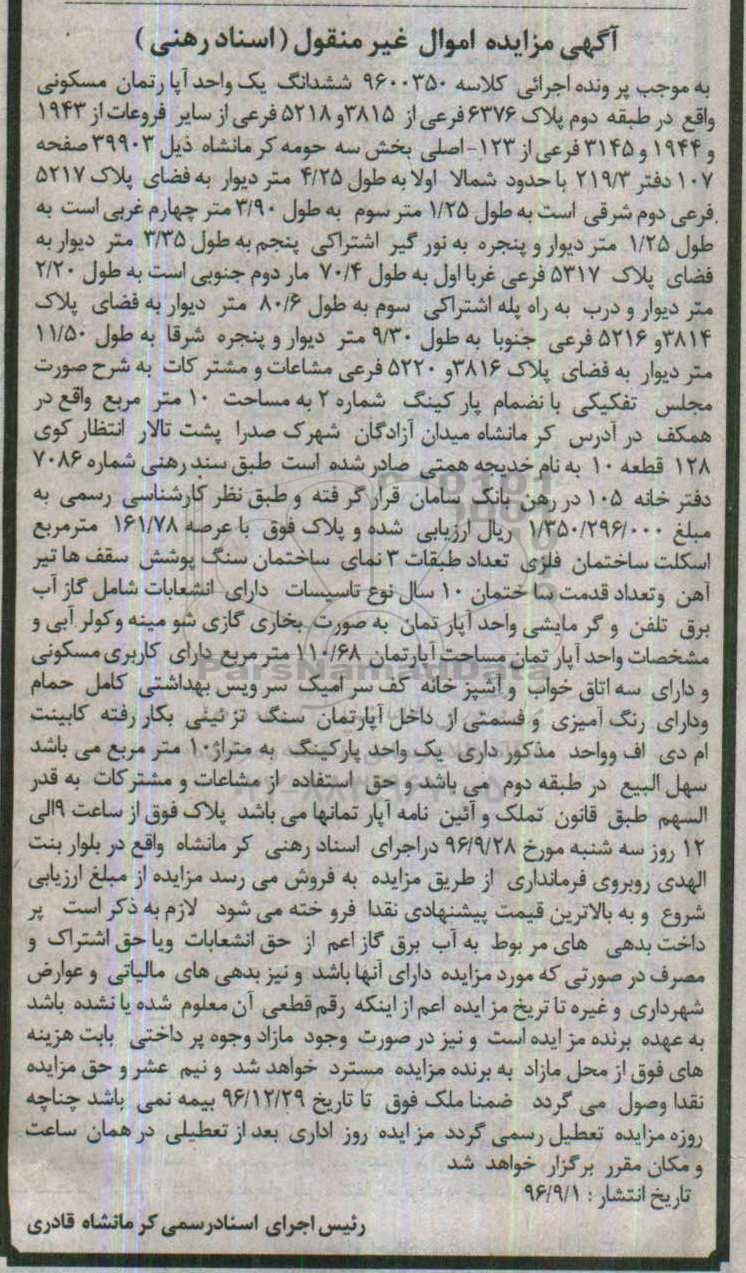 آگهی مزایده اموال غیر منقول (اسناد رهنی)
به موجب پرونده اجرائی کلاسه ۹۶۰۰۳۵۰ ششدانگ یک واحد آپارتمان مسکونی
واقع در طبقه دوم پلاک ۶۳۷۶ فرعی از ۳۸۱۵ و ۵۲۱۸ فرعی از سایر فروعات از ۱۹۴۳
و ۱۹۴۴ و ۳۱۴۵ فرعی از ۱۲۳- اصلی بخش سه حومه کرمانشاه ذیل ۳۹۹۰۳ صفحه
۱۰۷ دفتر ۲۱۹/۳ با حدود شمالا اولا به طول ۴/۲۵ متر دیوار به فضای پلاک ۵۲۱۷
فرعی دوم شرقی است به طول ۱/۲۵ متر سوم به طول ۳/۹۰ متر چهارم غربی است به
طول ۱/۲۵ متر دیوار و پنجره به نور گیر اشتراکی پنجم به طول ۳/۳۵ متر دیوار به
فضای پلاک ۵۳۱۷ فرعی غربا اول به طول ۷۰/۴ مار دوم جنوبی است به طول ۲/۲۰
متر دیوار و درب به راه پله اشتراکی سوم به طول ۸۰/۶ متر دیوار به فضای پلاک
۳۸۱۴ و ۵۲۱۶ فرعی جنوبا به طول ۹/۳۰ متر دیوار و پنجره شرقا به طول ۱۱/۵۰
متر دیوار به فضای پلاک ۳۸۱۶ و ۵۲۲۰ فرعی مشاعات و مشترکات به شرح صورت
مجلس تفکیکی با نضمام پارکینگ شماره ۲ به مساحت ۱۰ متر مربع واقع در
همکف در آدرس کرمانشاه میدان آزادگان شهرک صدرا پشت تالار انتظار کوی
۱۲۸ قطعه ۱۰ به نام خدیجه همتی صادر شده است طبق سند رهنی شماره ۷۰۸۶
دفتر خانه ۱۰۵ در رهن بانک سامان قرار گرفته و طبق نظر کارشناسی رسمی به
مبلغ ۱/۳۵۰/۲۹۶/۰۰۰ ریال ارزیابی شده و پلاک فوق با عرصه ۱۶۱/۷۸ مترمربع
اسکلت ساختمان فلزی تعداد طبقات ۳ نمای ساختمان سنگ پوشش سقف ها تیر
آهن وتعداد قدمت ساختمان ۱۰ سال نوع تاسیسات دارای انشعابات شامل گاز آب
برق تلفن و گرمایشی واحد آپارتمان به صورت بخاری گازی شومینه وکولر آبی و
مشخصات واحد آپارتمان مساحت آپارتمان ۱۱۰/۶۸ متر مربع دارای کاربری مسکونی
و دارای سه اتاق خواب و آشپزخانه کف سرامیک سرویس بهداشتی کامل حمام
ودارای رنگ آمیزی و قسمتی از داخل آپارتمان سنگ تزئینی بکار رفته کابینت
ام دی اف وواحد مذکور داری یک واحد پارکینگ به متراژ ۱۰ متر مربع می باشد
سهل البیع در طبقه دوم می باشد و حق استفاده از مشاعات و مشترکات به قدر
السهم طبق قانون تملک و آئین نامه آپارتمانها می باشد پلاک فوق از ساعت ۹ الی
۱۲ روز سه شنبه مورخ ۹۶/۹/۲۸ دراجرای اسناد رهنی کرمانشاه واقع در بلوار بنت
الهدی روبروی فرمانداری از طریق مزایده به فروش می رسد مزایده از مبلغ ارزیابی
شروع و به بالاترین قیمت پیشنهادی نقدا فروخته می شود لازم به ذکر است پر
داخت بدهی های مربوط به آب برق گاز اعم از حق انشعابات ویا حق اشتراک و
مصرف در صورتی که مورد مزایده دارای آنها باشد و نیز بدهی های مالیاتی و عوارض
شهرداری و غیره تا تریخ مزایده اعم از اینکه رقم قطعی آن معلوم شده یا نشده باشد
به عهده برنده مزایده است و نیز در صورت وجود مازاد وجوه پرداختی بابت هزینه
های فوق از محل مازاد به برنده مزایده مسترد خواهد شد و نیم عشر و حق مزایده
نقدا وصول می گردد ضمنا ملک فوق تا تاریخ ۹۶/۱۲/۲۹ بیمه نمی باشد چناچه
روزه مزایده تعطیل رسمی گردد مزایده روز اداری بعد از تعطیلی در همان ساعت
و مکان مقرر برگزار خواهد شد
تاریخ انتشار : ۹۶/۹/۱
رئیس اجرای اسنادرسمی کرمانشاه قادری
ParsNamadData